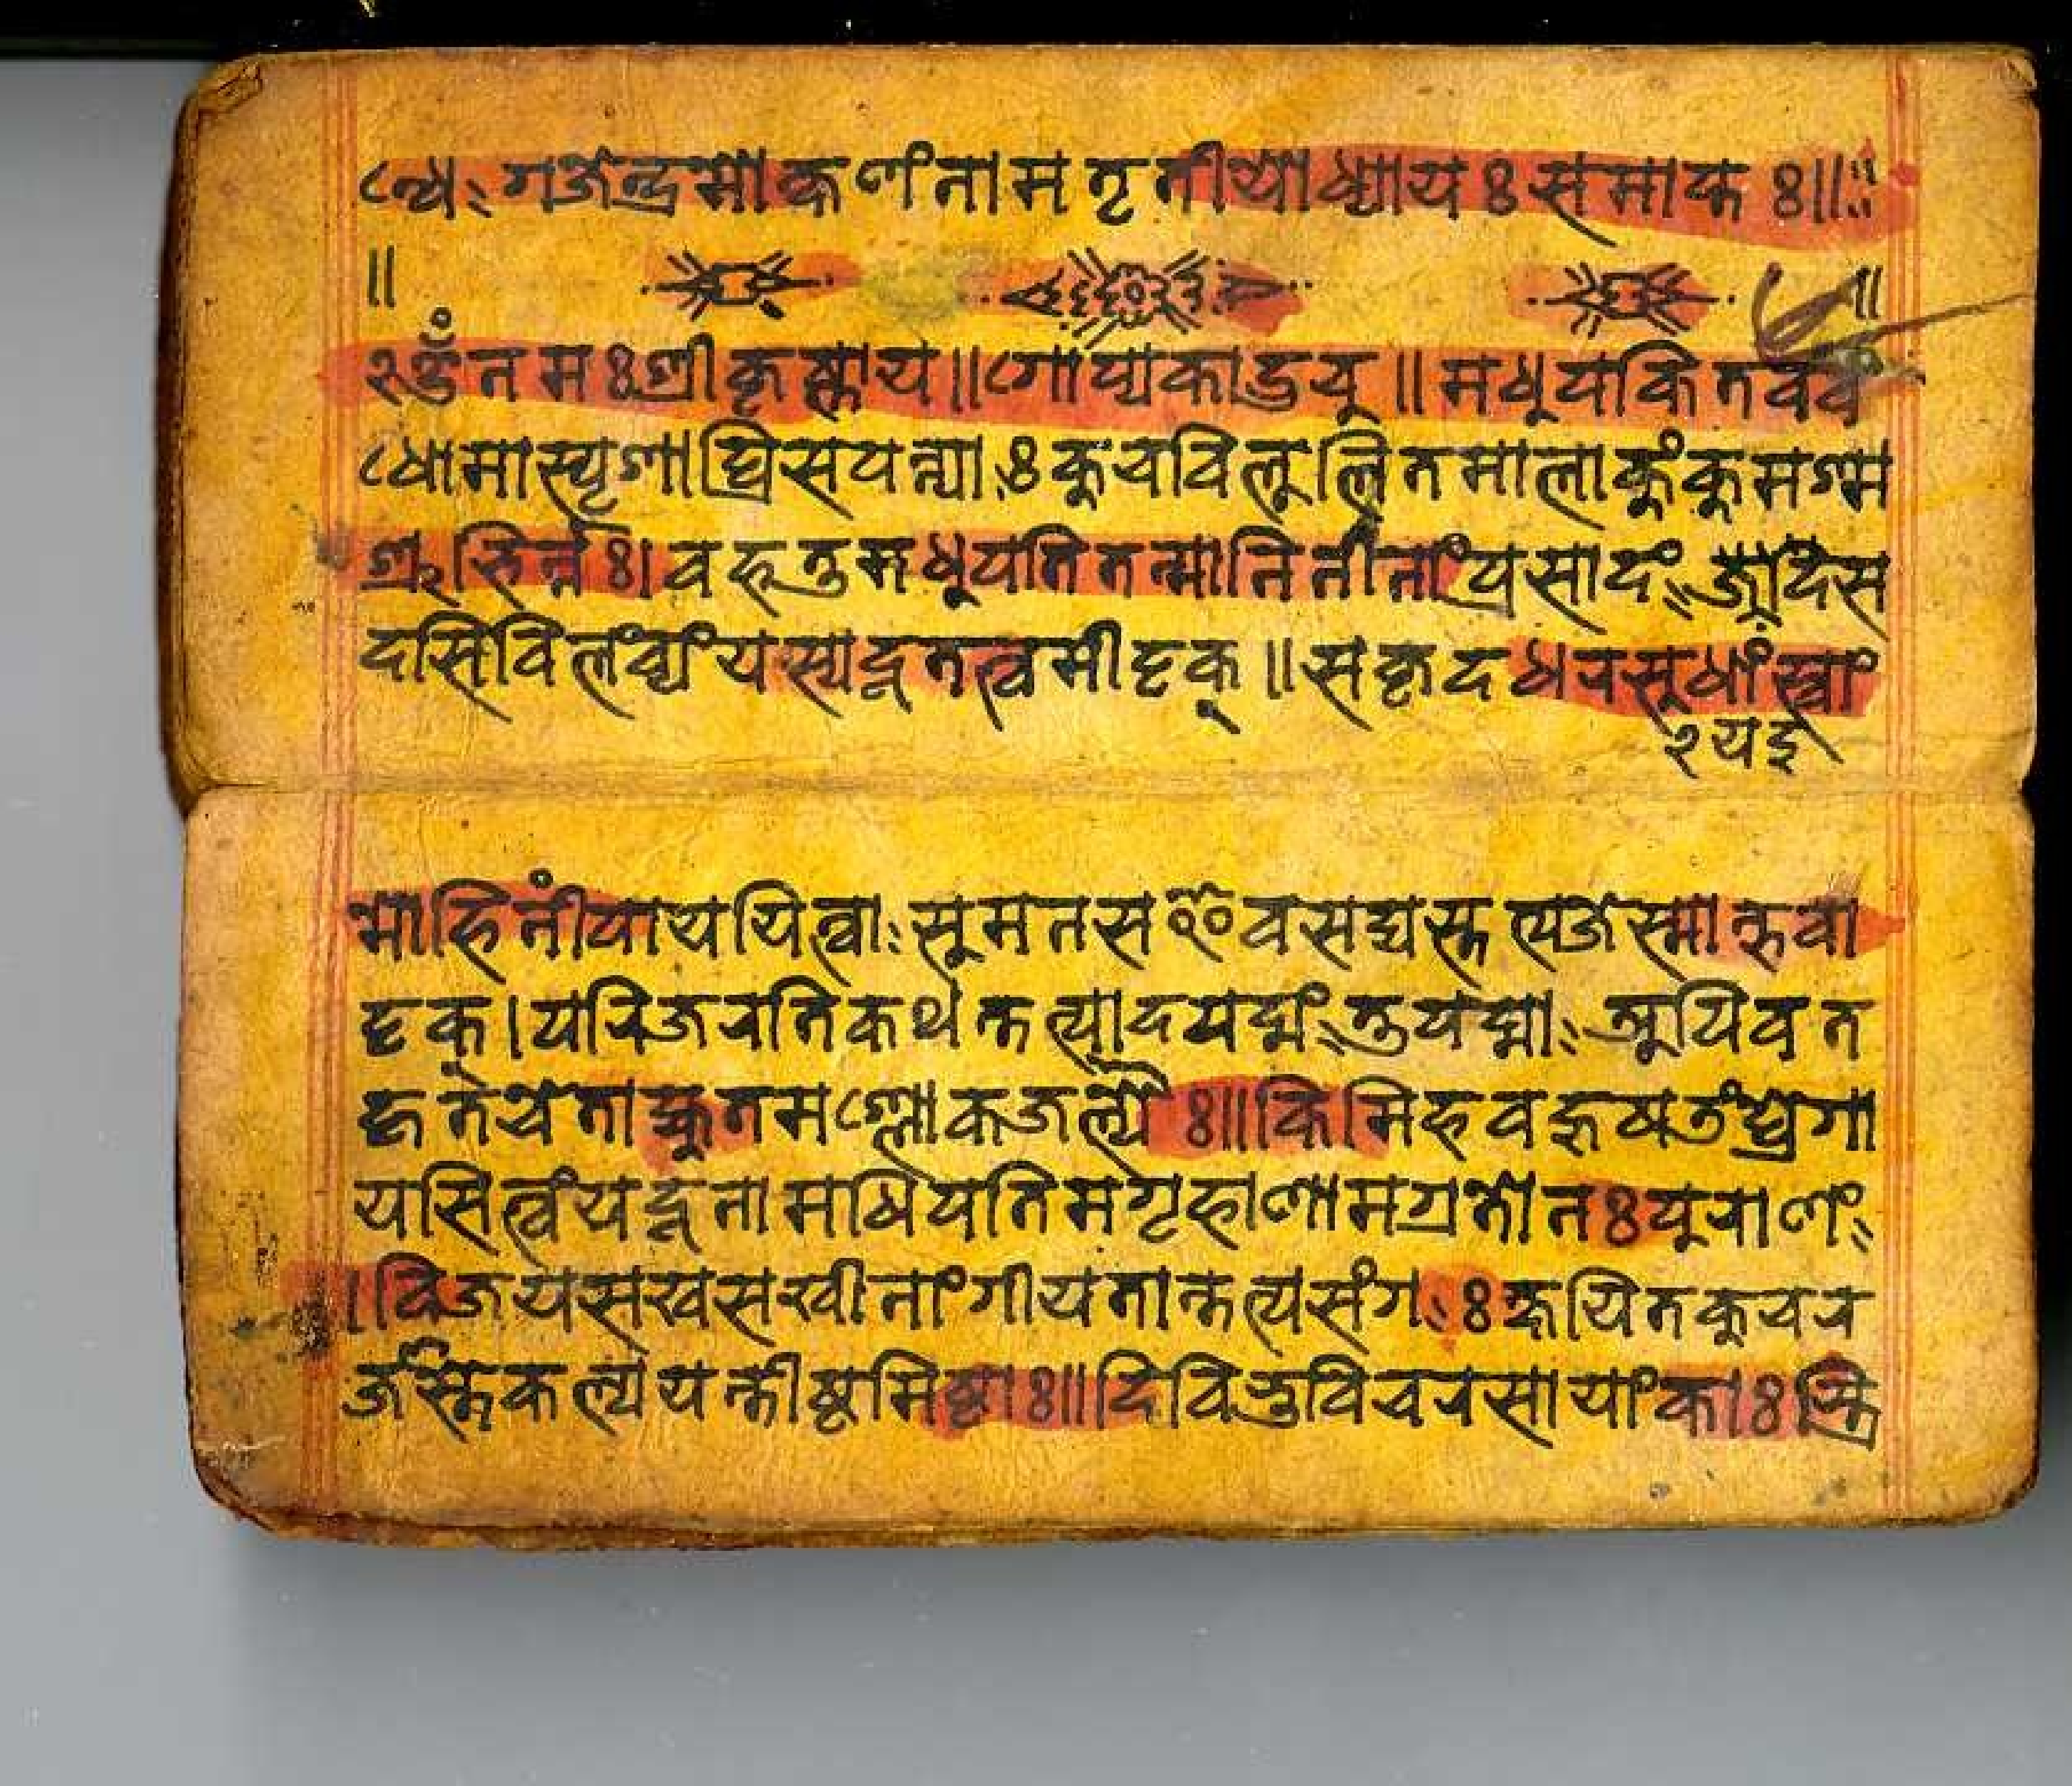 न्धे गजेन्द्रमोक्षणंनामतृतीयोध्यायः समाप्तः॥
॥ ॥
१ॐनमःश्रीकृष्णाय॥गोप्यकाउचु॥मधुपकितवव
धोमास्पृशाघ्रिसपत्न्याःकुचविलुलितमालाकुंकुमश्म
श्रुभिर्न्नः।वहतुमधुपतितन्मानिनीनांप्रसादंजदुदिस
दसिविलंव्यंयस्यदूतत्वमीदृक्॥सकृदधरसुधांस्वां
मोहिनींपाययित्वासुमनसइवसद्यस्तत्यजेस्मान्भवा
दृक्।परिचरतिकथंतत्पादपद्मंतुपद्माअपिवत
हृतचेताह्युतमश्लोकजल्पैः॥किमिहवहुषडंघ्रेगा
यसित्वंयदूनामधिपतिमगृहाणामग्रतोनःपुराणं
।विजयसखसखीनांगीयतान्तत्प्रसंगःक्षपितकुचरु
जस्तेकल्पयन्तीष्टमिष्टाः॥दिविभुविचरसायांकाःस्त्रि